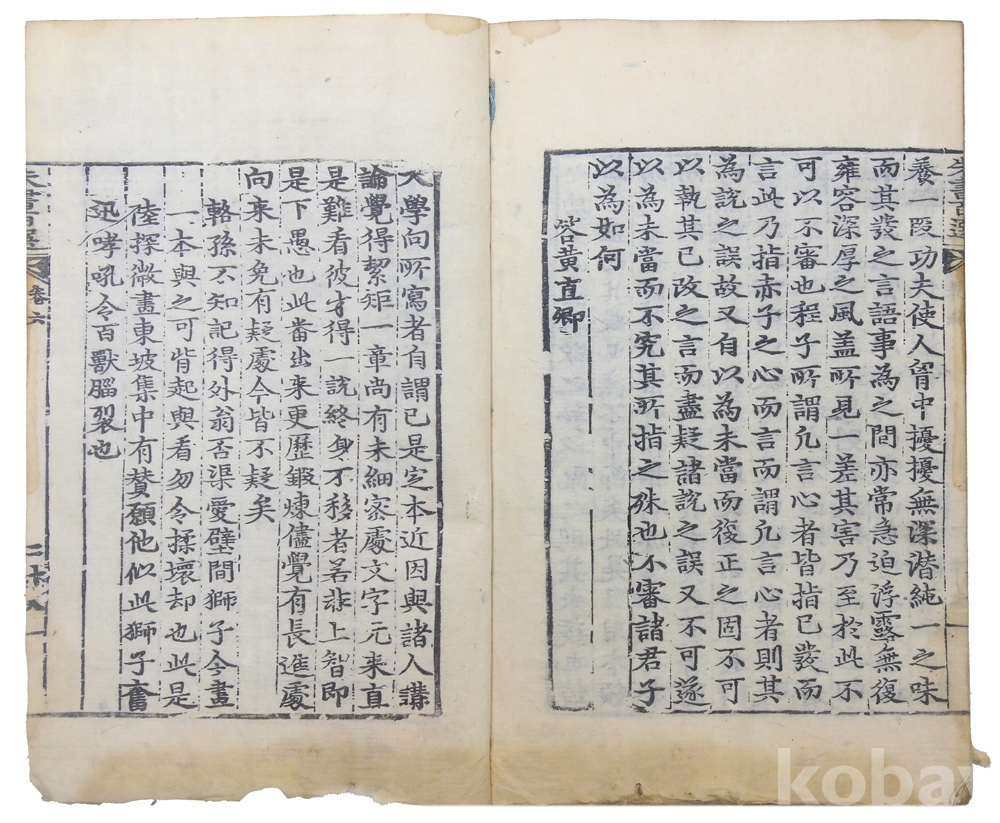 養一段功夫使人胷中擾擾無深潛純一之味
而其發之言語事為之間亦常急迫浮露無復
雍容深厚之風盖所見一差其害乃至於此不
可以不審也程子所謂凡言心者皆指已發而
言此乃指赤子之心而言而謂凡言心者則其
為說之誤故又自以為未當而復正之固不可
以執其已改之言而盡疑諸說之誤又不可遂
以為未當而不究其所指之殊也不審諸君子
以為如何
答黃直卿
大學向所寫者自謂已是定本近因與諸人講
論覺得絜矩一章尚有未細密處文字元來直
是難看彼才得一說終身不移者若非上智即
是下愚也此番出來更歷鍛煉儘覺有長進處
向來未免有疑處今皆不疑矣
輅孫不知記得外翁否渠愛壁間獅子今畫
一本與之可背起與看勿令揉壞却也此是
陸探微畫東坡集中有贊願他似此獅子奮
迅哮吼令百獸腦裂也
朱書百選 卷六 二十八
kobay